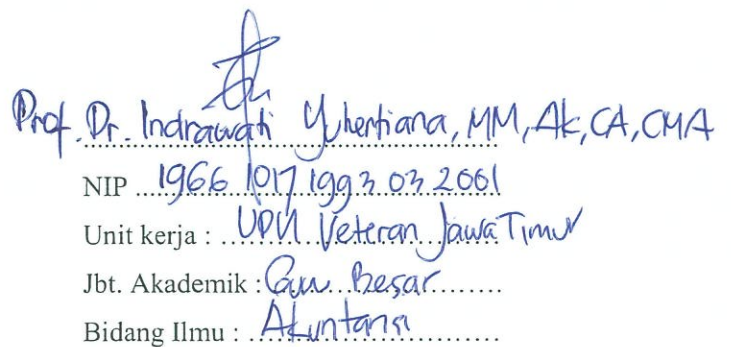 Prof. Dr. Indrawati Yuhertiana, MM, Ak, CA, CMA
NIP 1966 1017 1993 03 2001
Unit kerja : UPN Veteran Jawa Timur
Jbt. Akademik : Guru Besar
Bidang Ilmu : Akuntansi